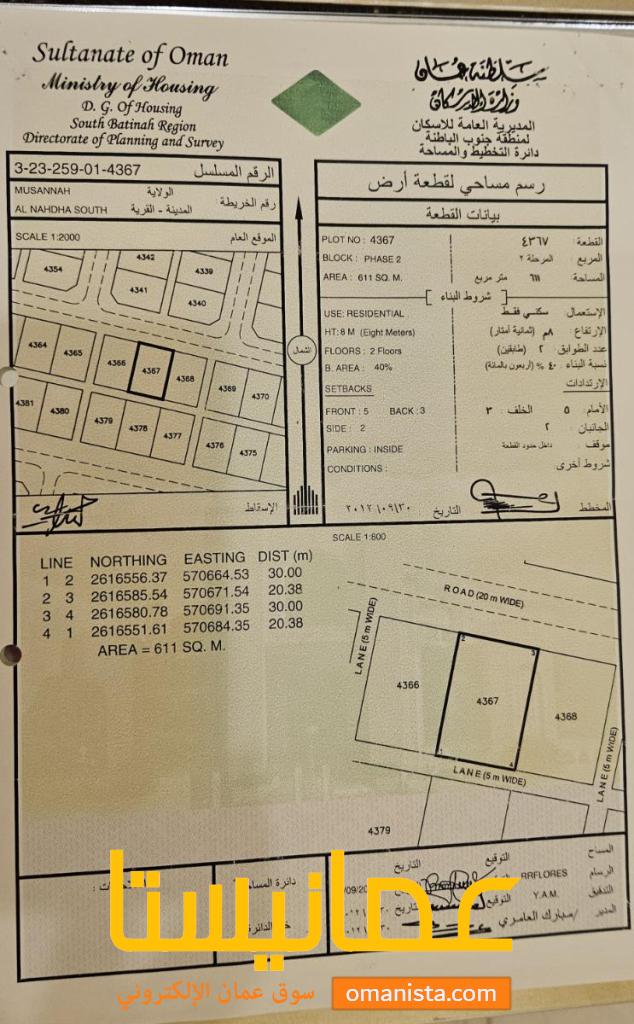 Sultanate of Oman
Ministry of Housing
D. G. Of Housing
South Batinah Region
Directorate of Planning and Survey
سلطنة عمان
وزارة الإسكان
المديرية العامة للاسكان
لمنطقة جنوب الباطنة
دائرة التخطيط والمساحة
3-23-259-01-4367 الرقم المسلسل
MUSANNAH الولاية
AL NAHDHA SOUTH المدينة - القرية رقم الخريطة
SCALE 1:2000 الموقع العام
4354 4342 4339
4341 4340
4364 4365 4366 4367 4368 4369 4370
4381 4380 4379 4378 4377 4376 4375
الإسقاط
الشمال
رسم مساحي لقطعة أرض
بيانات القطعة
PLOT NO : 4367 القطعة : ٤٣٦٧
BLOCK : PHASE 2 المربع : المرحلة ٢
AREA : 611 SQ. M. المساحة : ٦١١ متر مربع
شروط البناء
USE: RESIDENTIAL الإستعمال: سكني فقط
HT: 8 M (Eight Meters) الإرتفاع : ٨م (ثمانية أمتار)
FLOORS : 2 Floors عدد الطوابق : ٢ (طابقين)
B. AREA : 40% نسبة البناء : ٤٠ % (أربعون بالمائة)
SETBACKS الإرتدادات
FRONT : 5 BACK : 3 الأمام : ٥ الخلف : ٣
SIDE : 2 الجانبان : ٢
PARKING : INSIDE موقف : داخل حدود القطعة
CONDITIONS : شروط أخرى :
المخطط التاريخ ٢٠١٢/٠٩/٣٠
SCALE 1:800
LINE NORTHING EASTING DIST (m)
1 2 2616556.37 570664.53 30.00
2 3 2616585.54 570671.54 20.38
3 4 2616580.78 570691.35 30.00
4 1 2616551.61 570684.35 20.38
AREA = 611 SQ. M.
ROAD (20 m WIDE)
LANE (5 m WIDE)
2 3
4366 4367 4368
1 4
LANE (5 m WIDE)
LANE (5 m WIDE)
4379
المساح RRFLORES التوقيع التاريخ
الرسام
التدقيق Y.A.M. التوقيع التاريخ
المدير /مبارك العامري
عمانيستا
سوق عمان الإلكتروني
omanista.com